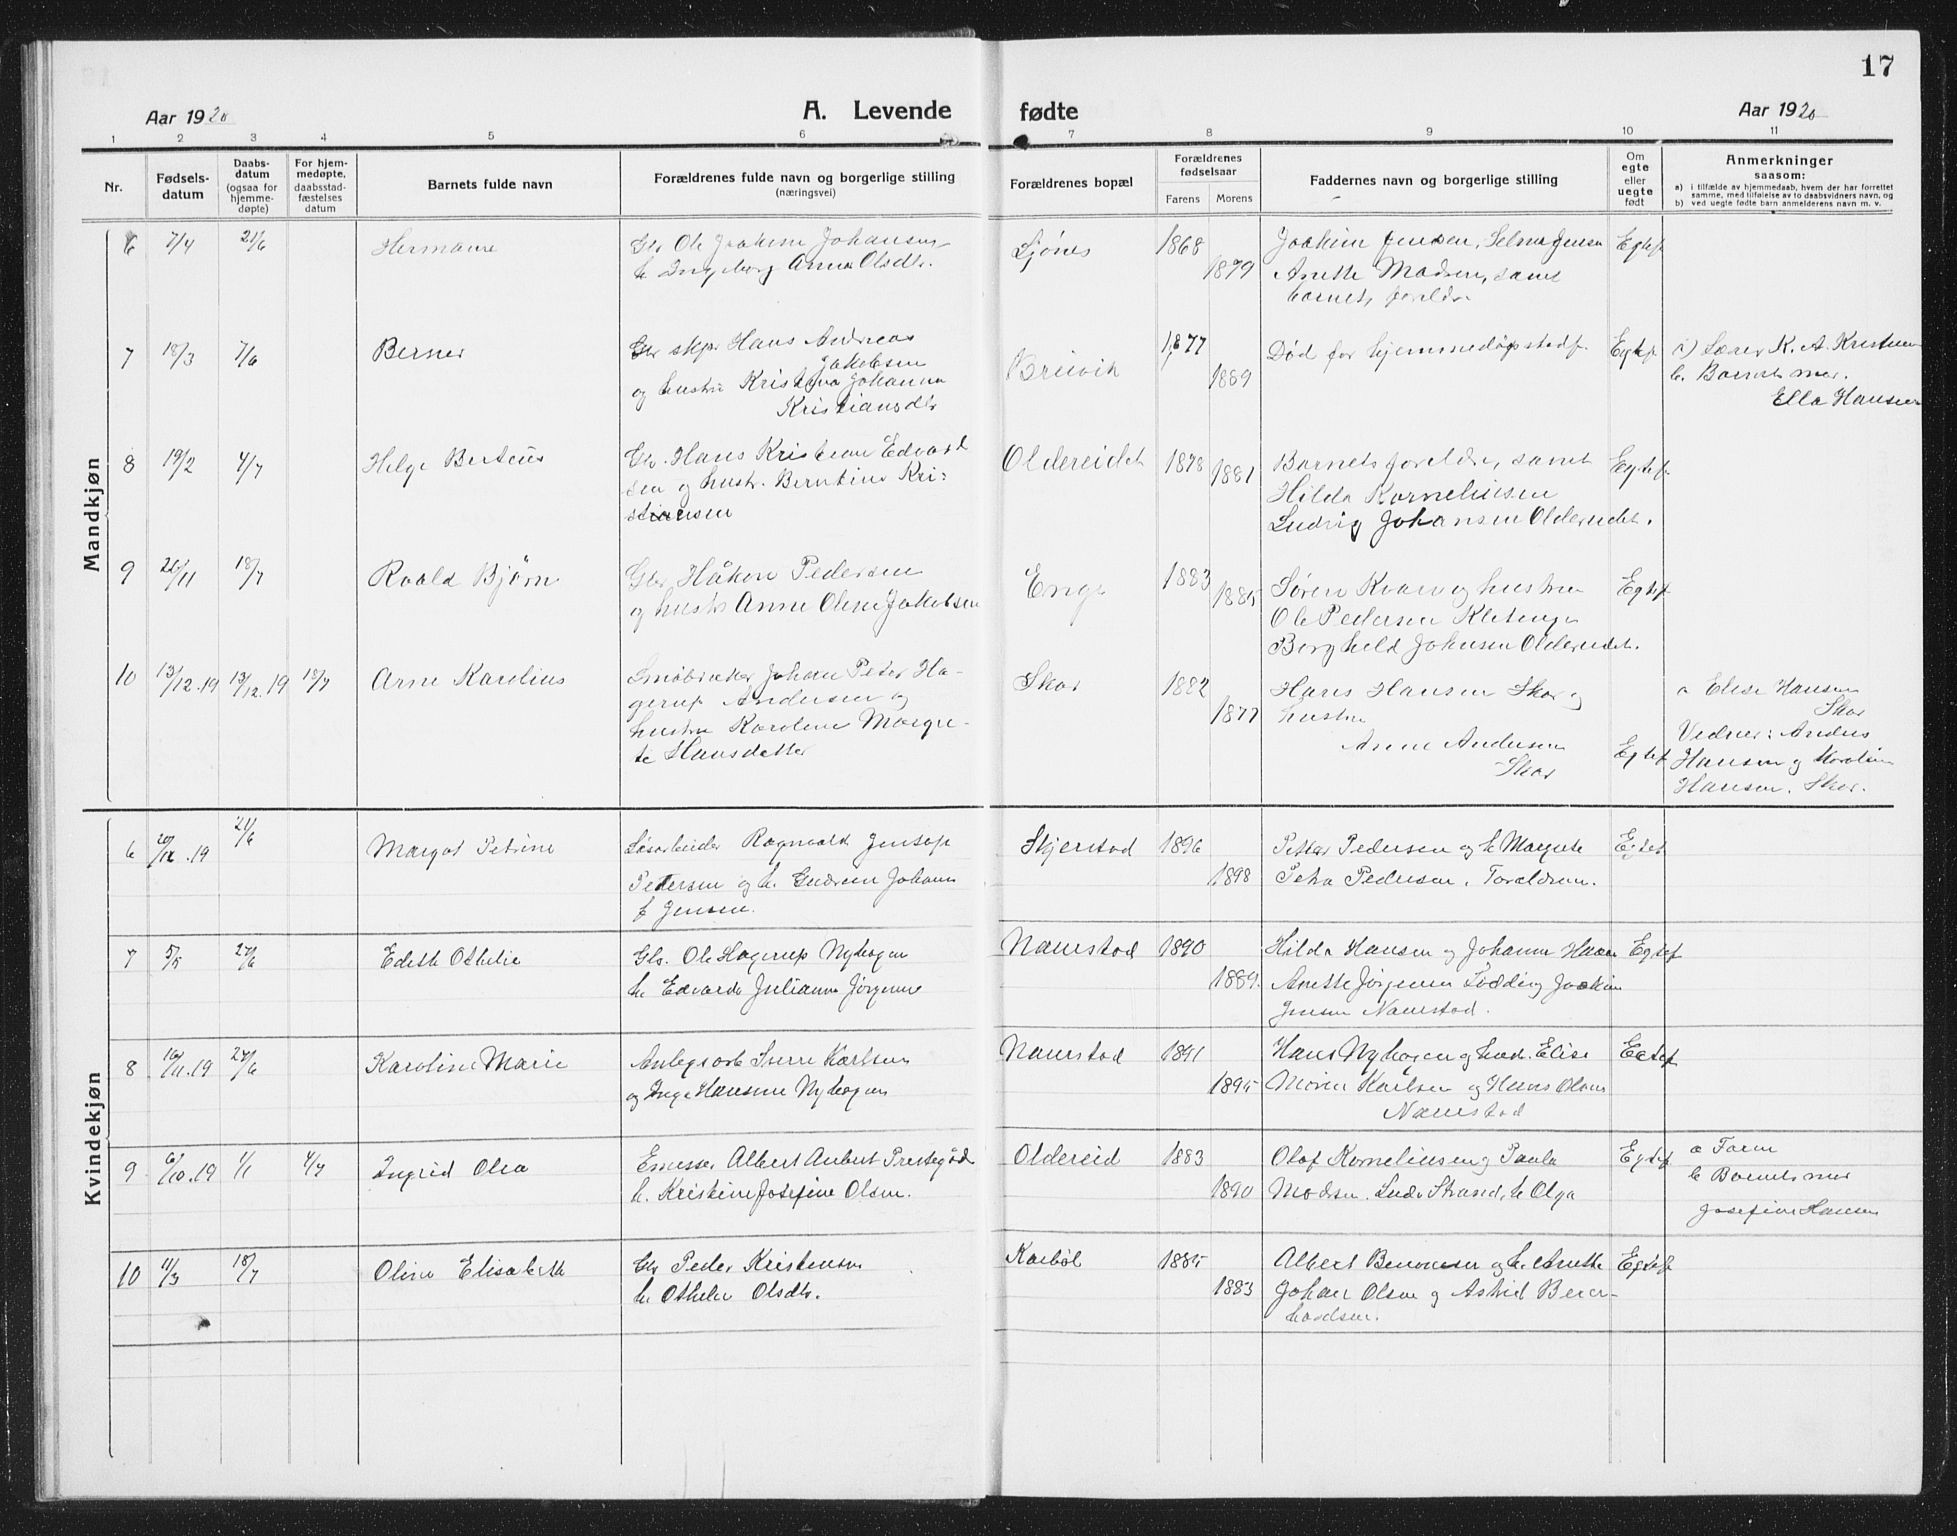 17
Aar 1920
A. Levende fødte
Aar 1920
1 2 3 4 5 6 7 8 9 10 11
Nr.
Fødsels-
datum
Daabs-
datum
(ogsaa for
hjemme-
døpte)
For hjem-
medøpte,
daabsstad-
fæstelses
datum
Barnets fulde navn
Forældrenes fulde navn og borgerlige stilling
(næringsvei)
Forældrenes bopæl
Forældrenes
fødselsaar
Farens Morens
Faddernes navn og borgerlige stilling
Om
egte
eller
uegte
født
Anmerkninger
saasom:
a) i tilfælde av hjemmedaab, hvem der har forrettet
samme, med tilføielse av to daabsvidners navn, og
b) ved uegte fødte barn anmelderens navn m. v.
Mandkjøn
6 7/4 21/6 Ole Joakim Johansen Sjønes 1868 Joakim Jensen, Selma Jensen Egtef
h. Ingeborg Anna Olsdtr. 1879 Anette Madsen, samt
barnets foreldre
7 18/3 7/6 Berner Gbr skpr Hans Andreas Breivik 1877 Død før hjemmedåpstadf. Egtef a) Lærer K. A. Kristensen
Jakobsen 1889 b. Barnets mor.
og hustru Kristina Johanna Ella Hansen
Kristiansdtr
8 19/2 4/7 Helge Berteus Gbr. Hans Kristian Edvard Oldereidet 1878 1881 Barnets foreldre, samt Egtef
sen og hustr. Berntine Kri- Hilda Korneliusen
stiansen Ludvig Johansen Oldereidet.
9 /11 18/7 Roald Bjørn Gbr Håkon Pedersen Enge 1883 1885 Søren Kvarv og hustru Egtef
og hustr Anne Oline Jakobsen Ole Pedersen Kletenge
Borghild Johnsen Oldereidet.
10 13/12.19 13/12.19 18/7 Arne Karelius Småbruker Johan Peter Ha- Skar 1882 Hans Hansen Skar og a Elise Hansen
gerup Andersen og 1877 hustru Skar
hustru Karoline Margre- Anne Andersen Egtef Vidner: Anders
te Hansdatter Skar Hansen og Karoline
Hansen, Skar.
Kvindekjøn
6 20/12.19 21/6 Margot Petrine Løsarbeider Ragnvald Jentof Skjerstad 1896 Petter Pedersen og h. Margrete Egtef
Pettersen og h. Gudrun Johann 1898 Petra Pedersen. Foreldrene.
f Jensen.
7 5/5 27/6 Edith Othelie Gbr. Ole Hagerup Nyhagen Naurstad 1890 Hilda Hansen og Johanne Hansen Egtef
h. Edvarda Julianna Jørgensen 1889. Anette Jørgensen Lødding Joakim
Jensen Naurstad.
8 16/11.19 27/6 Karoline Marie Anlegsarb Sverre Karlsen Naurstad 1891 Hans Nyhagen og hust. Elise Egtef
og Inga Hansine Nyhagen 1895 Morten Karlsen og Hans Olsen
Naurstad
9 6/10.19 1/1 4/7 Ingrid Olea Albert Aubert Prestegård Oldereid 1883 Olaf Kornelinsen og Paula Egtef a Faren
h. Kristine Josefine Olsen. 1890 Madsen. Strand, h Olga b Barnets mor
Josefine Hansen
10 11/3 18/7 Oline Elisabeth Gbr Peder Kristensen Karbøl 1885 Albert Benonisen og h. Anette Egtef
h. Othelie Olsdtr. 1883 Johan Olsen og Astrid Beier-
hardsen.